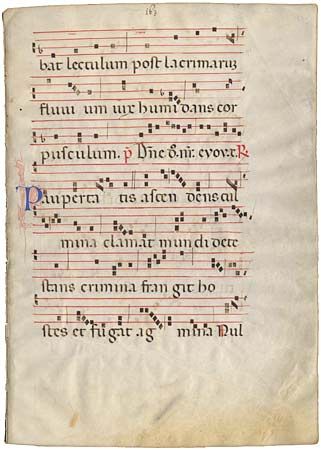 163
bat lectulum post lacrimarum
fluvi um vix humi dans cor
pusculum. p̄ Dn̄e
Pauperta tis ascen dens cul
mina clamat mundi dete
stans crimina fran git ho
stes et fugat ag mina Nul